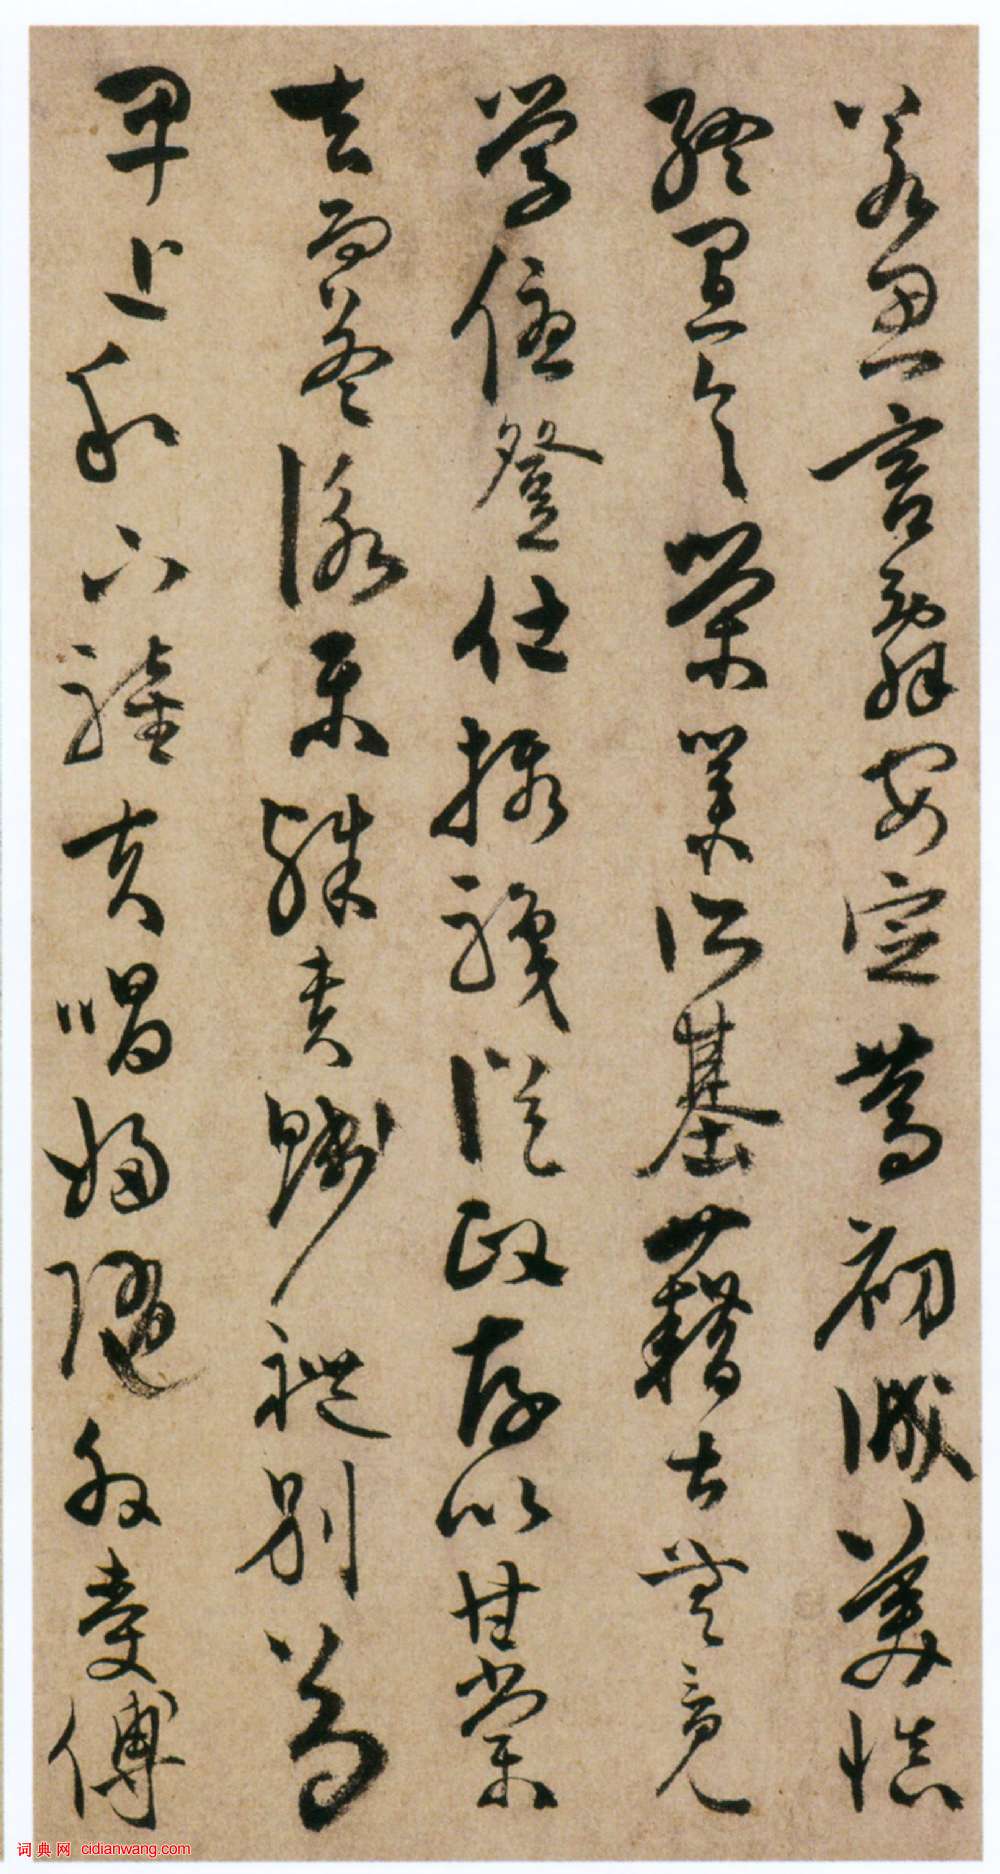 若思言辭安定篤初誠美慎
終宜令榮業所基藉甚無竟
學優登仕攝職從政存以甘棠
去而益詠樂殊貴賤禮別尊
卑上和下睦夫唱婦隨外受傅
词典网 cidianwang.com